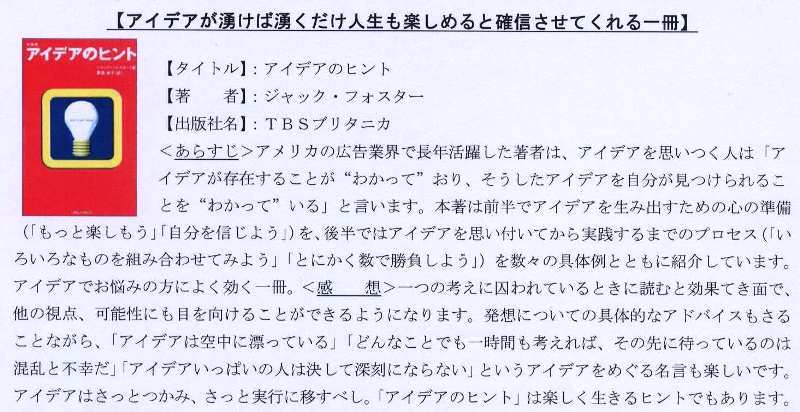 【アイデアが湧けば湧くだけ人生も楽しめると確信させてくれる一冊】
アイデアのヒント
【タイトル】：アイデアのヒント
【著　　者】：ジャック・フォスター
【出版社名】：ＴＢＳブリタニカ
＜あらすじ＞アメリカの広告業界で長年活躍した著者は、アイデアを思いつく人は「ア
イデアが存在することが“わかって”おり、そうしたアイデアを自分が見つけられるこ
とを“わかって”いる」と言います。本著は前半でアイデアを生み出すための心の準備
（「もっと楽しもう」「自分を信じよう」）を、後半ではアイデアを思い付いてから実践するまでのプロセス（「い
ろいろなものを組み合わせてみよう」「とにかく数で勝負しよう」）を数々の具体例とともに紹介しています。
アイデアでお悩みの方によく効く一冊。＜感　　想＞一つの考えに囚われているときに読むと効果てき面で、
他の視点、可能性にも目を向けることができるようになります。発想についての具体的なアドバイスもさる
ことながら、「アイデアは空中に漂っている」「どんなことでも一時間も考えれば、その先に待っているのは
混乱と不幸だ」「アイデアいっぱいの人は決して深刻にならない」というアイデアをめぐる名言も楽しいです。
アイデアはさっとつかみ、さっと実行に移すべし。「アイデアのヒント」は楽しく生きるヒントでもあります。